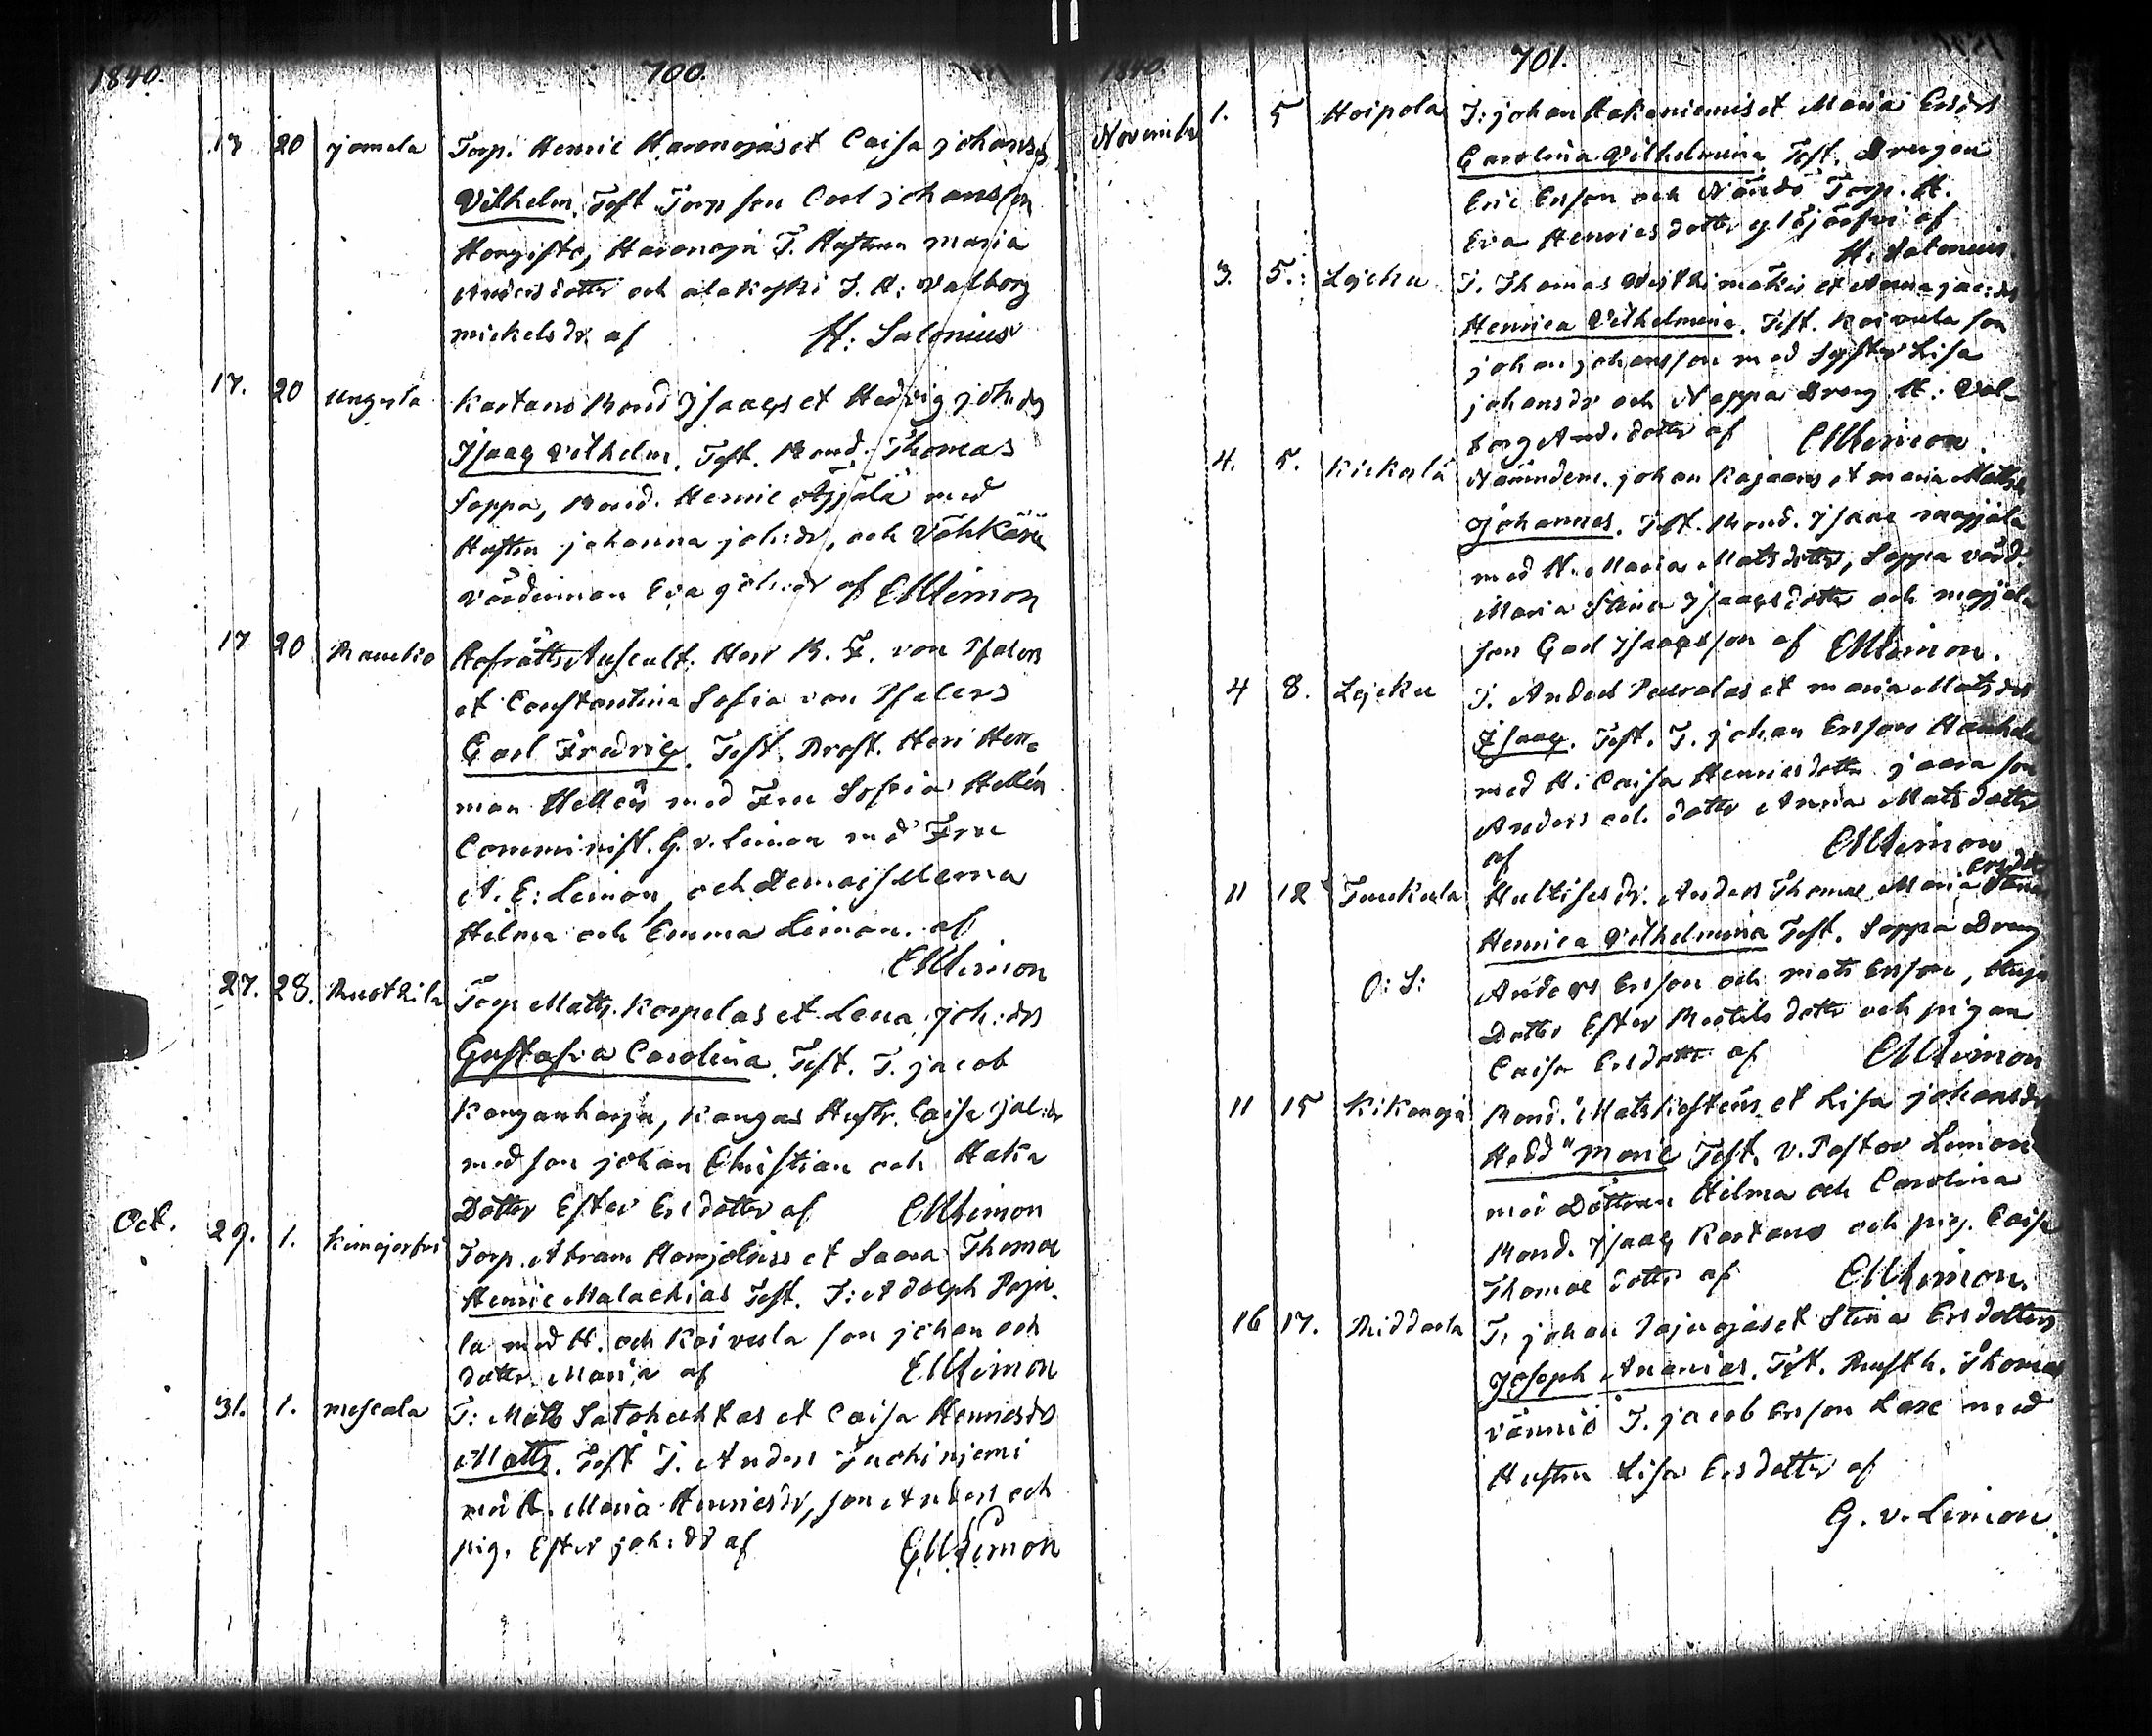 1840. 700.
13 20 jamala Torp. Henric Haronojas et Caisa johansds
Vilhelm. Test Torp son Carl johansson
Hongisto, Haronoja T. Hustrun Maria
Anders dotter och alakoski T. H: Valborg
mickelsdr af H: Salonius
17. 20 Kartano Bond Isaacs et Hedvig joh:ds
Isaac Vilhelm. Test. Bond. Thomas
Soppa, Bond. Henric Äyälä med
Hustru johanna joh:dr, och Vähkäri
värdinnan Eva joh:dr af Limon
17 20 Hofrätts Auscult: Herr B. F. von Pfaler
et Constantina Sofia von Pfalers
Carl Fredric. Test. Prost. Herr Her-
man Hellén med Fru Sofia Hellén
Comminist. G. v. Limon med Fru
A. E: Limon, och demoisellerna
Hilma och Emma Limon. af
Limon
27. 28. Ruotkila Torp Matts. Korpelas et Lena joh:drs
Gustafva Carolina. Test. T. jacob
Kanganharju, Kangas Hustr. Caisa jac:dr
med son johan Christian och Haka
Dotter Ester Ersdotter af Limon
Oct. 29. 1. Torp. Abram et Saara Thomæ
Henric Malachias Test. T: Adolph Paju-
la med H. och Koivula son johan och
dotter Maria af Limon
31. 1. mescala T: Matts Satohuhtas et Caisa Henricsds
Matts. Test T. Anders
med H. Maria Henricsdr, son Anders och
pig. Ester joh:dr af Limon
1840. 701.
November 1. 5 Hoipola T: johan Hakaniemis et Maria Ersdrs
Carolina Vilhelmina Test. Drengen
Eric Ersson och Torp. H.
Eva Henricsdotter Yljäsjärvi af
H. Salonius.
3. 5.: Lejcku T. Thomas mäkis et Anna jac:ds
Henrica Vilhelmina. Test. Koivula son
johan johansson med Syster Lisa
johansdr och Nappa Dreng H: Val-
borg And. dotter af Limon.
4. 5. Kickelä Nämndem. johan Kajaans et maria Matts
Johannes. Test. Bond. Isaac majjala
med H. Maria Mats dotter, Soppa värd.
Maria Stina Isaacsdotter och majjala
son Carl Isaacsson af Limon.
4 8. Lejcku T. Anders Peuralas et maria Matsdrs
Isaac. Test. T. johan Ersson Hauhala
med H. Caisa Henricsdotter jaara son
Anders och dotter Anna Matsdotter
af Limon
11 12 Tuuckala Anders Thomæ Maria Stina Ersdotter
Henrica Vilhelmina Test. Soppa Dreng
O: S: Anders Ersson och mats Ersson,
Dotter Ester dotter och pigan
Caisa Ersdotter af Limon
11 15 Kikonoja Bond. Mats et Lisa johansdr
Hedd" Marie Test. v. Pastor Limon
med Döttrar Hilma och Carolina
Bond. Isaac Kartano och pig. Caisa
Thomæ dotter af Limon.
16 17. Riddarla T: johan Pajuojas et Stina Ersdotters
Joseph Ananias. Test. Rusth. Thomas
Vännió T. jacob Ersson Laxe med
Hustru Lisa Ersdotter af
G. v. Limon.